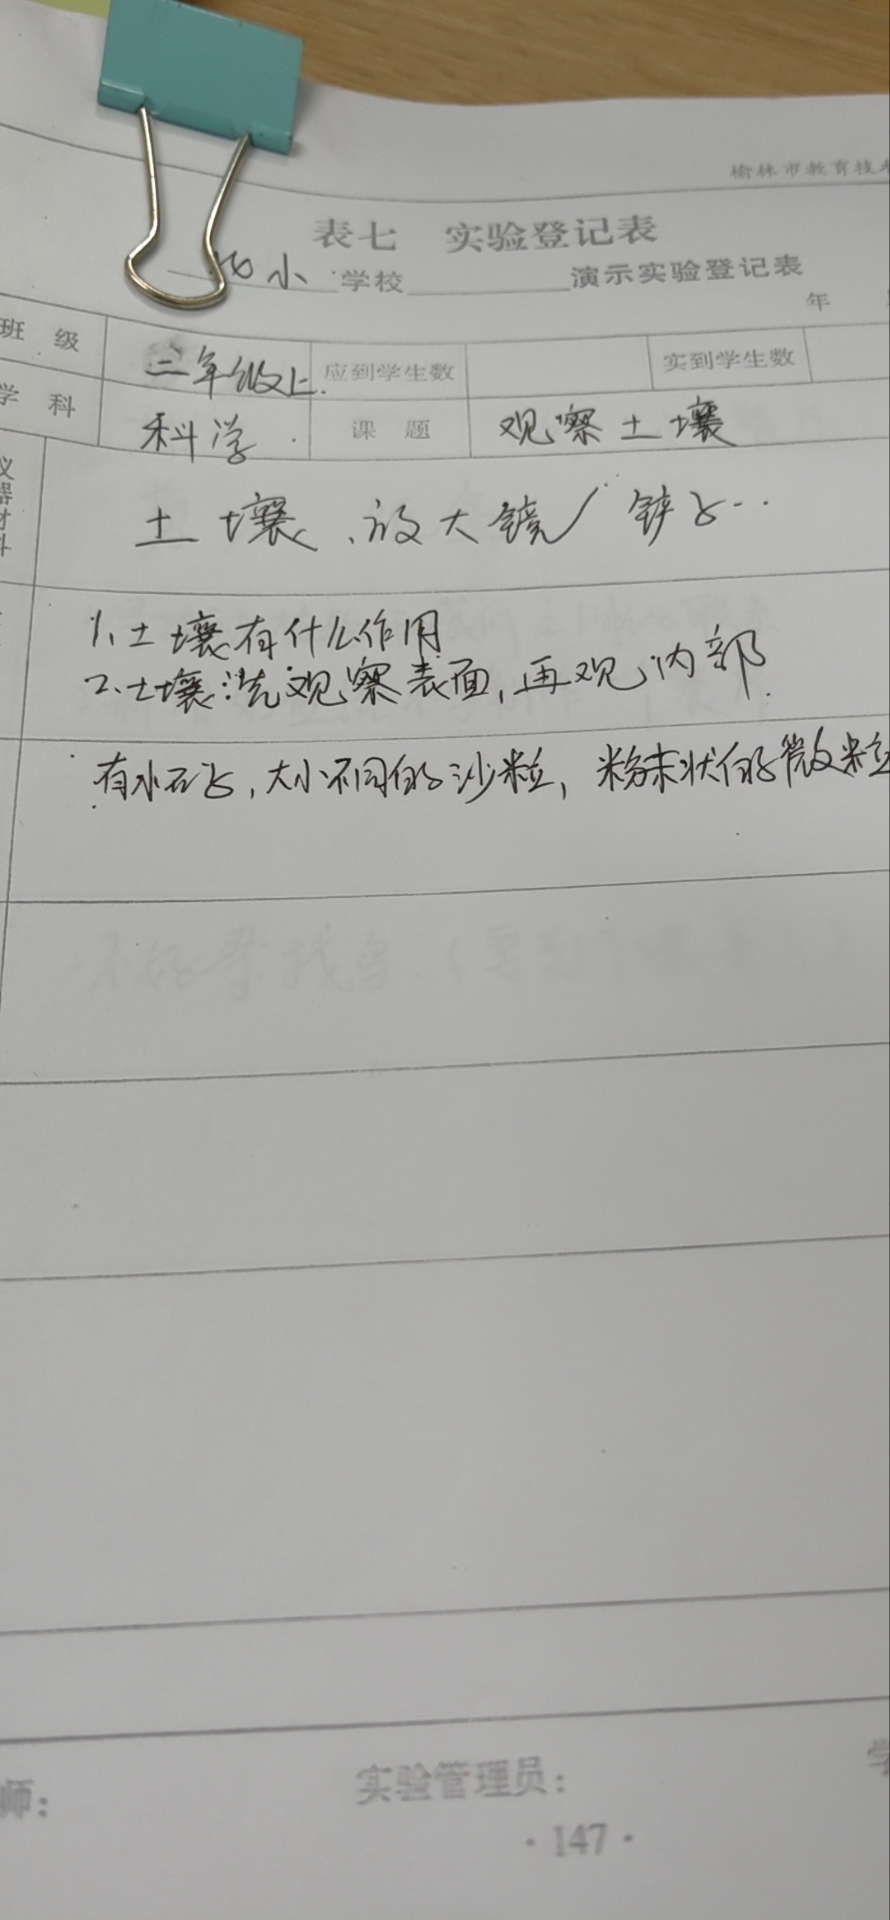 榆林市教育技术
表七 实验登记表
小 学校 演示实验登记表
年
班级 二年级上 应到学生数 实到学生数
学科 科学 课题 观察土壤
仪器材料 土壤、放大镜 铲子…
1、土壤有什么作用
2、土壤先观察表面,再观内部
有小石子,大小不同的沙粒,粉末状的微粒
师: 实验管理员: 学
·147·